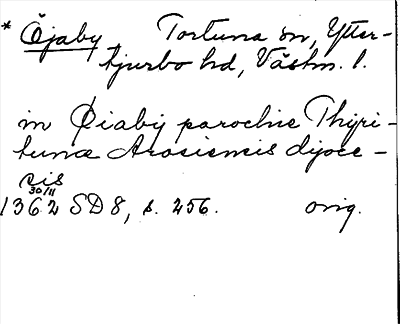 * Öjaby Tortuna sn, Ytter-
tjurbo hd, Västm. l.
in Øiabij parochie Thijri-
tuna Arosiensis dijoce-
sis
30/11
1362 SD 8, s. 256. orig.